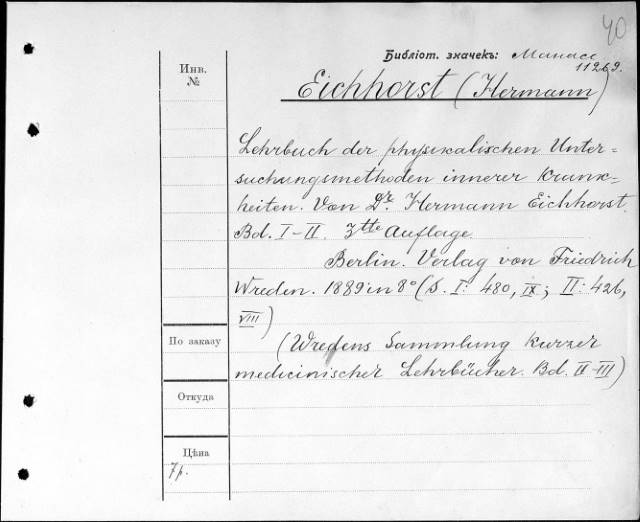 40
Библіот. значекъ: Манасс
11269.
Инв.
№
Eichhorst (Hermann)
Lehrbuch der physikalischen Unter-
suchungsmethoden innerer Krank-
heiten. Von Dr. Hermann Eichhorst
Bd. I-II. 3tte Auflage.
Berlin. Verlag von Friedrich
Wreden. 1889 in 8° (S. I: 480, IX; II: 426,
VIII)
По заказу
(Wredens Sammlung kurzer
medicinischer Lehrbücher. Bd. II-III)
Откуда
Цѣна
7р.